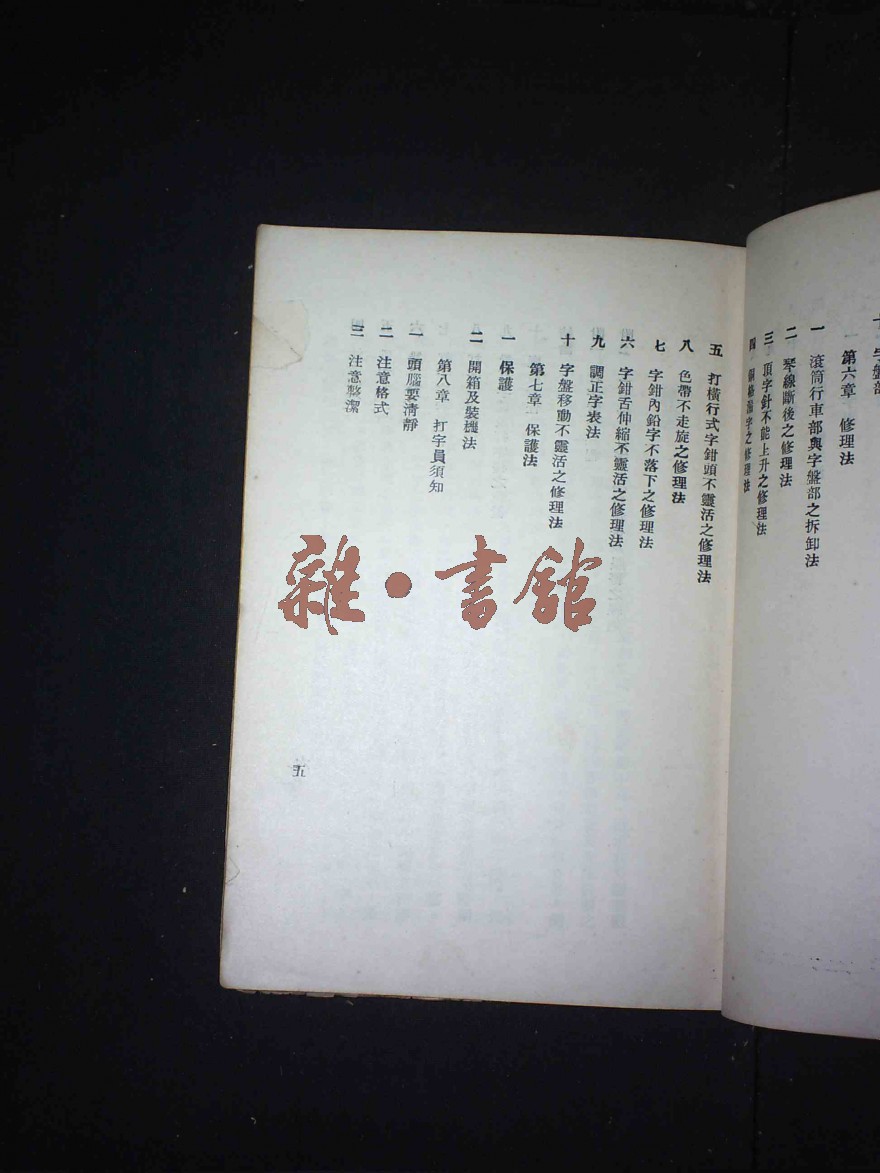 字盤部
第六章 修理法
一 滾筒行車部與字盤部之拆卸法
二 琴線斷後之修理法
三 頂字針不能上升之修理法
四 之修理法
五 打橫行式字鉗頭不靈活之修理法
八 色帶不走旋之修理法
七 字鉗內鉛字不落下之修理法
六 字鉗舌伸縮不靈活之修理法
九 調正字表法
十 字盤移動不靈活之修理法
第七章 保護法
一 保護
二 開箱及裝機法
第八章 打字員須知
一 頭腦要清靜
二 注意格式
三 注意整潔
五
雜·書館